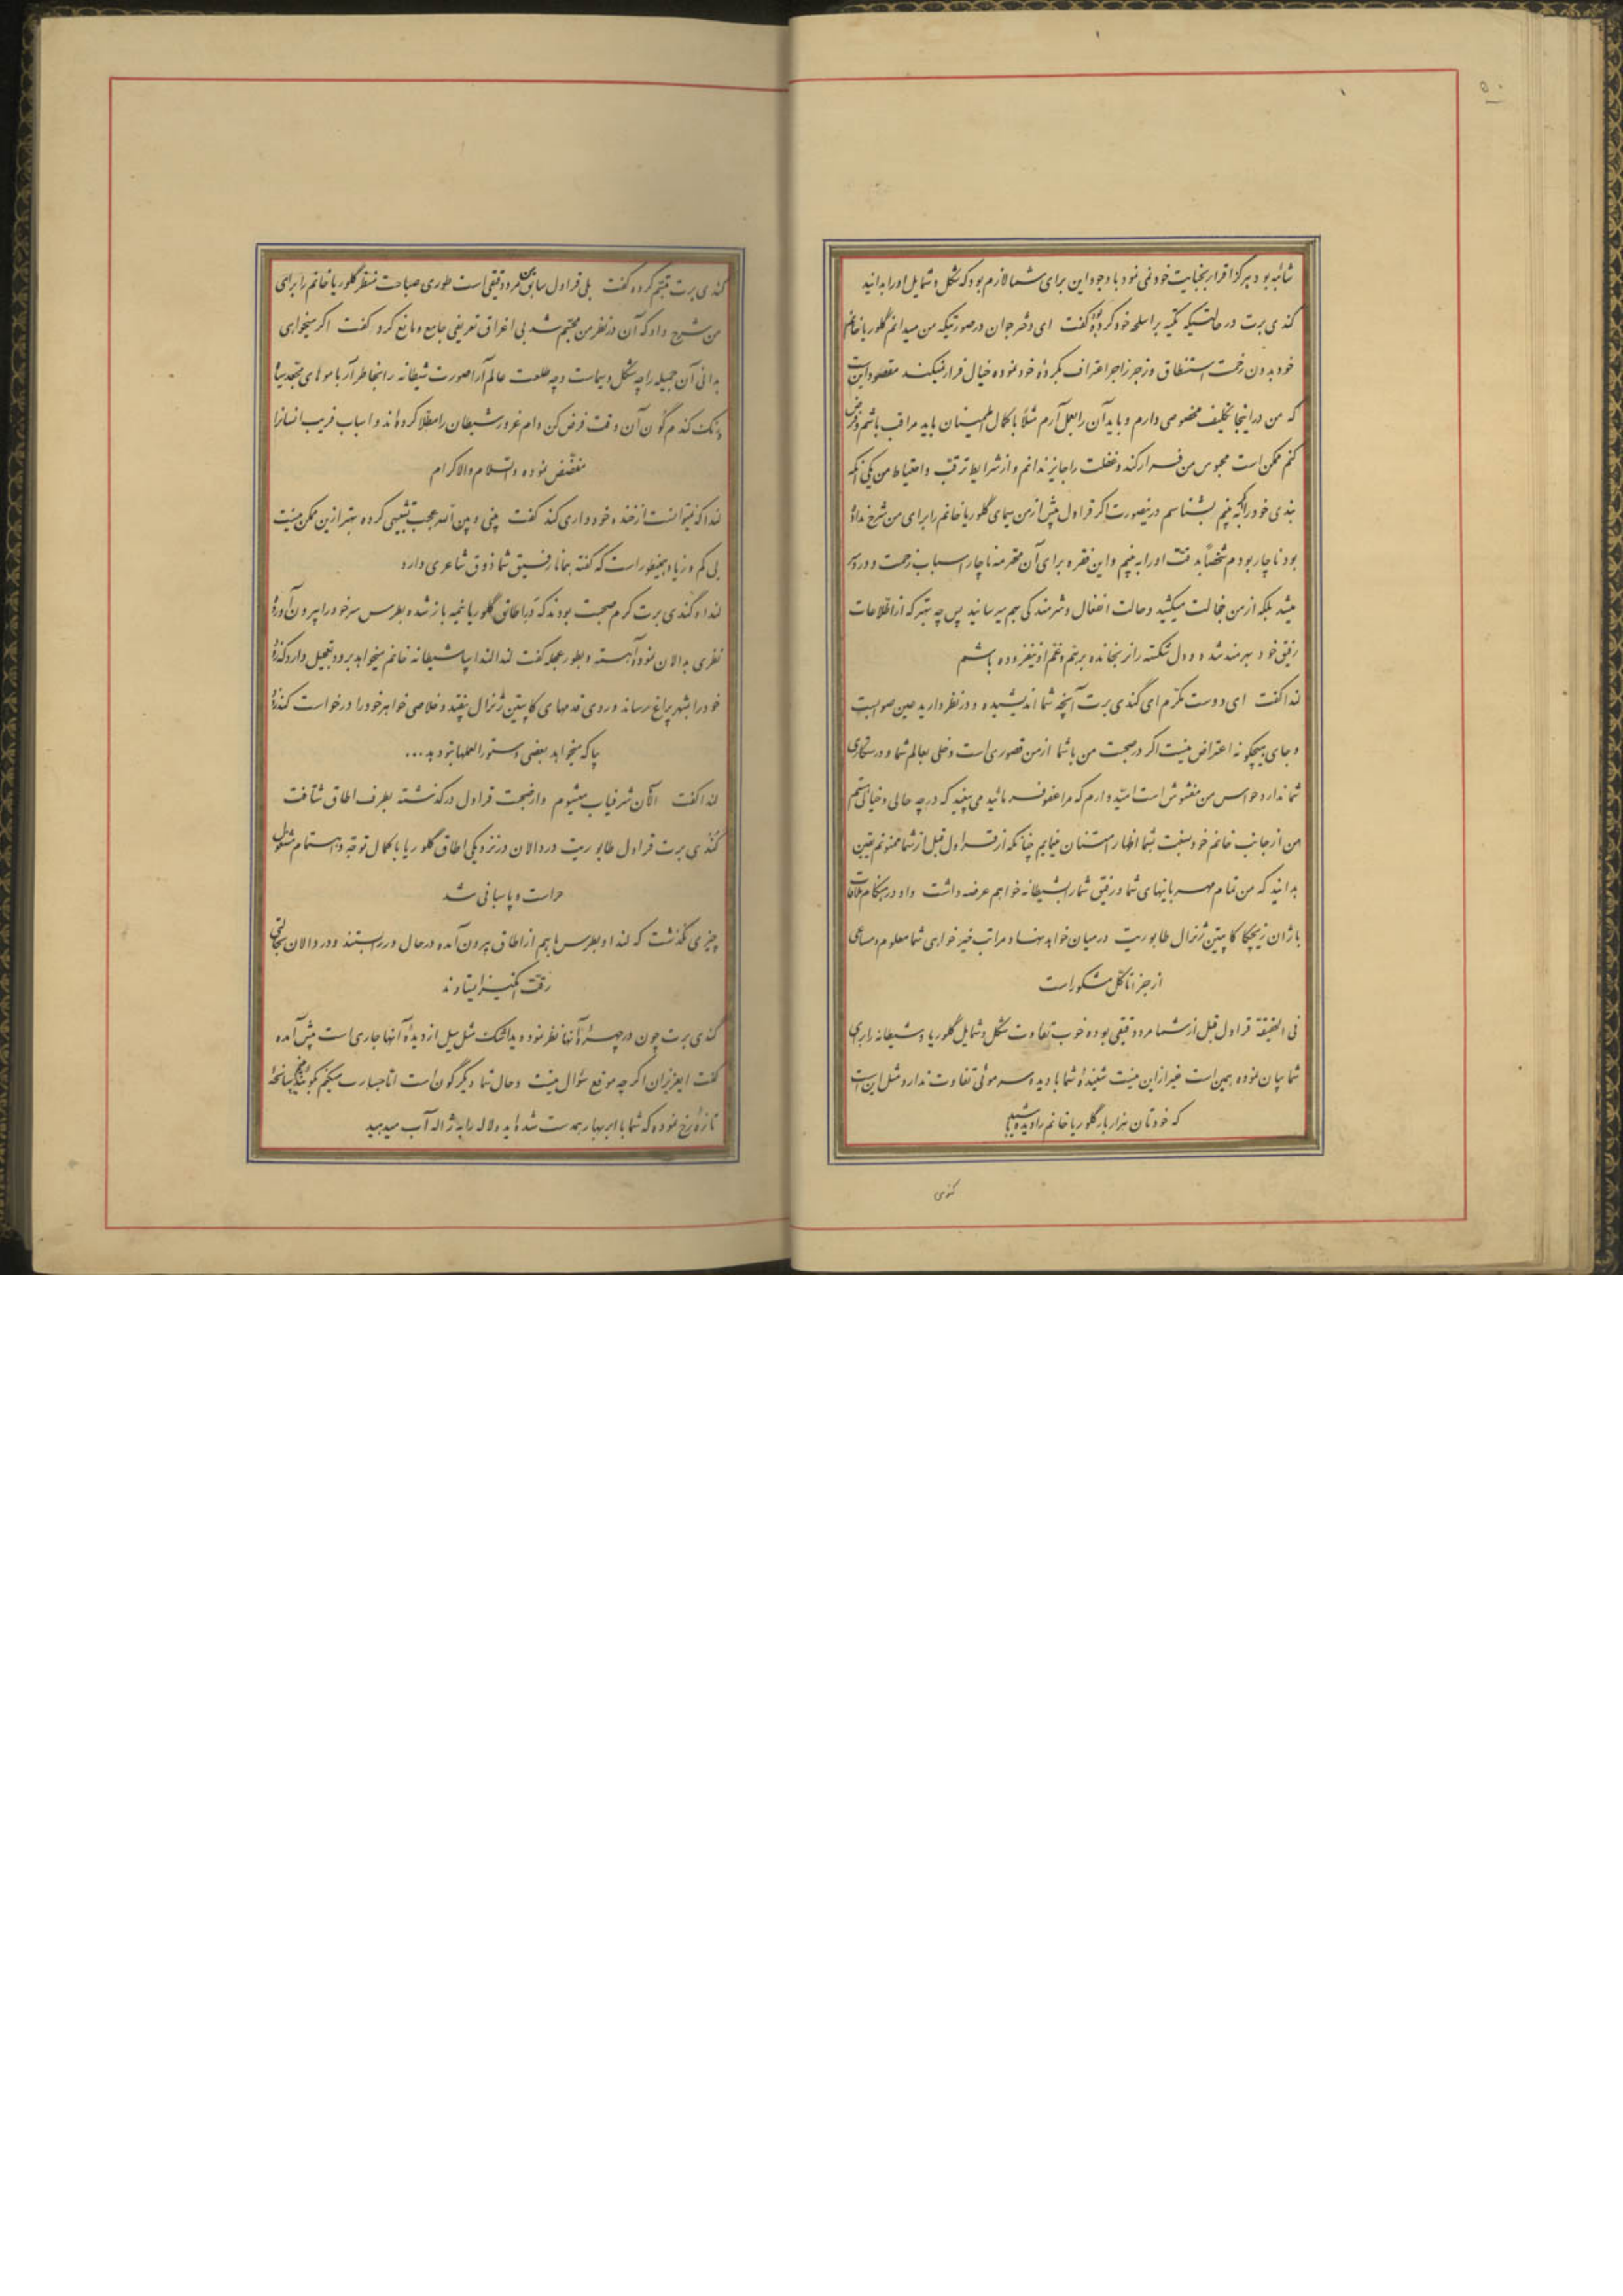 ۵۰
شائبه بود هرگز اقرار بجنایت خود نمی نمود با وجود این برای شما لازم بود که شکل و شمایل او را بدانید
کندی برت در حالتیکه تکیه بر اسلحه خود کرده بود گفت ای دختر جوان در صورتیکه من میدانم گلوریا خانم
خود بدون زحمت استنطاق و زجر زاجر اعتراف بکردهٔ خود نموده خیال فرار نمیکند مقصود این است
که من در اینجا تکلیف مخصوصی دارم و باید آن را بعمل آرم مثلاً با کمال اطمینان باید مراقب باشم و فرض
کنم ممکن است محبوس من فرار کند و غفلت را جایز ندانم و از شرایط ترقب و احتیاط من یکی آنکه
بندی خود را که به بینم بشناسم در اینصورت اگر قراول پیش از من سیمای گلوریا خانم را برای من شرح نداده
بود ناچار بودم شخصاً بدقت او را به بینم و این فقره برای آن محترمه ناچار اسباب زحمت و دردسر
میشد بلکه از من خجالت میکشید و حالت انفعال و شرمندگی بهم میرسانید پس چه بهتر که از اطلاعات
رفیق خود بهرمند شده و دل شکسته را نرنجانده بر هم و غم او نیفزوده باشم
لندا گفت ای دوست مکرم ای کندی برت آنچه شما اندیشیده و در نظر دارید عین صوابست
و جای هیچگونه اعتراض نیست اگر در صحبت من با شما از من قصوری است دخلی بعالم شما و درستکاری
شما ندارد حواس من مغشوش است امید وارم که مرا عفو فرمائید می بینید که در چه حالی و خیالی هستم
من از جانب خانم خود بسبقت بشما اظهار امتنان مینمایم چنانکه از قراول قبل از شما ممنونم یقین
بدانید که من تمام مهربانیهای شما و رفیق شما را بشیطانه خواهم عرضه داشت و او در هنگام ملاقات
با ژان زیچکا کاپیتن ژنرال طابوریت در میان خواهد نهاد و مراتب خیرخواهی شما معلوم و مساعی
از جزء تا کل مشکور است
فی الحقیقة قراول قبل از شما مرد دقیقی بوده خوب تفاوت شکل و شمایل گلوریا و شیطانه را برای
شما بیان نموده همین است غیر از این نیست شنیدهٔ شما با دیده سر موئی تفاوت ندارد مثل این است
که خودتان هزار بار گلوریا خانم را دیده باشید
کندی
کندی برت تبسم کرده گفت بلی قراول سابق من مرد دقیقی است طوری صباحت منظر گلوریا خانم را برای
من شرح داد که آن در نظر من مجسم شد بی اغراق تعریفی جامع و مانع کرد گفت اگر میخواهی
بدانی آن جمیله را چه شکل و سیماست و چه طلعت عالم آرا صورت شیطانه را بخاطر آر با موهای مجعد سیاه
و رنگ گندم گون آن وقت فرض کن دام غرور شیطان را مطلا کرده اند و اسباب فریب انسان را
مفضض نموده والسلام والاکرام
لندا که نمیتوانست از خنده خودداری کند گفت بینی و بین الله عجب تشبیهی کرده بهتر از این ممکن نیست
بی کم و زیاد همینطور است که گفته همانا رفیق شما ذوق شاعری دارد
لندا و کندی برت گرم صحبت بودند که در اطاق گلوریا نیمه باز شده بطرس سر خود را بیرون آورده
نظری بدالان نموده آهسته و بطور عجله گفت لندا لندا بیا شیطانه خانم میخواهد برود تعجیل دارد که زود
خود را بشهر پراغ رساند و روی قدمهای کاپیتن ژنرال بیفتد و خلاصی خواهر خود را درخواست کند زود
بیا که میخواهد بعضی دستورالعملها بتو دهد...
لندا گفت الآن شرفیاب میشوم و از صحبت قراول درگذشته بطرف اطاق شتافت
کندی برت قراول طابوریت در دالان در نزدیکی اطاق گلوریا با کمال توجه و اهتمام مشغول
حراست و پاسبانی شد
چیزی نگذشت که لندا و بطرس با هم از اطاق بیرون آمده در حال در را بستند و در دالان بحالتی
رقت انگیز ایستادند
کندی برت چون در چهرهٔ آنها نظر نمود دید اشک مثل سیل از دیدهٔ آنها جاری است پیش آمده
گفت ای عزیزان اگر چه موقع سؤال نیست و حال شما دیگرگون است اما جسارت میکنم بگوئید سانحهٔ
تازهٔ رخ نموده که شما با ابر بهار همدست شده اید و لاله را به ژاله آب میدهید